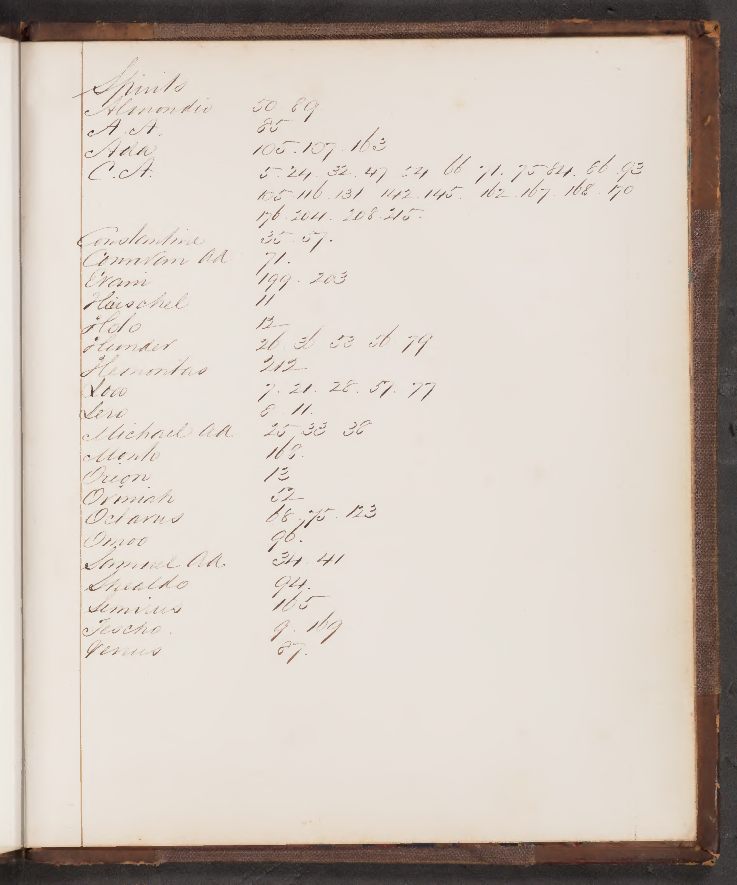 Spirits
Almondio 50. 89
A. A. 85
Ada 105. 107. 163
C. A. 5. 24. 32. 47 54 66 71. 75 84. 86. 93
105. 116. 131. 142. 145. 162. 167. 168. 170
176. 204. 208. 215.
Constantine 35. 57.
71.
199. 203
Hierschel 11
Holo 12
Hunder 26 36 53 56 79
Hemoritus 212
Loo 7. 21. 28. 57. 77
Lero 8 11.
Michael AA 25. 33 38
168.
Orion 13
Orimiah 52
Octavus 68. 75. 123
Omoo 96.
Samuel AA. 34. 41
Shealdo 94.
165
Tescho. 9. 169
Venus 87.